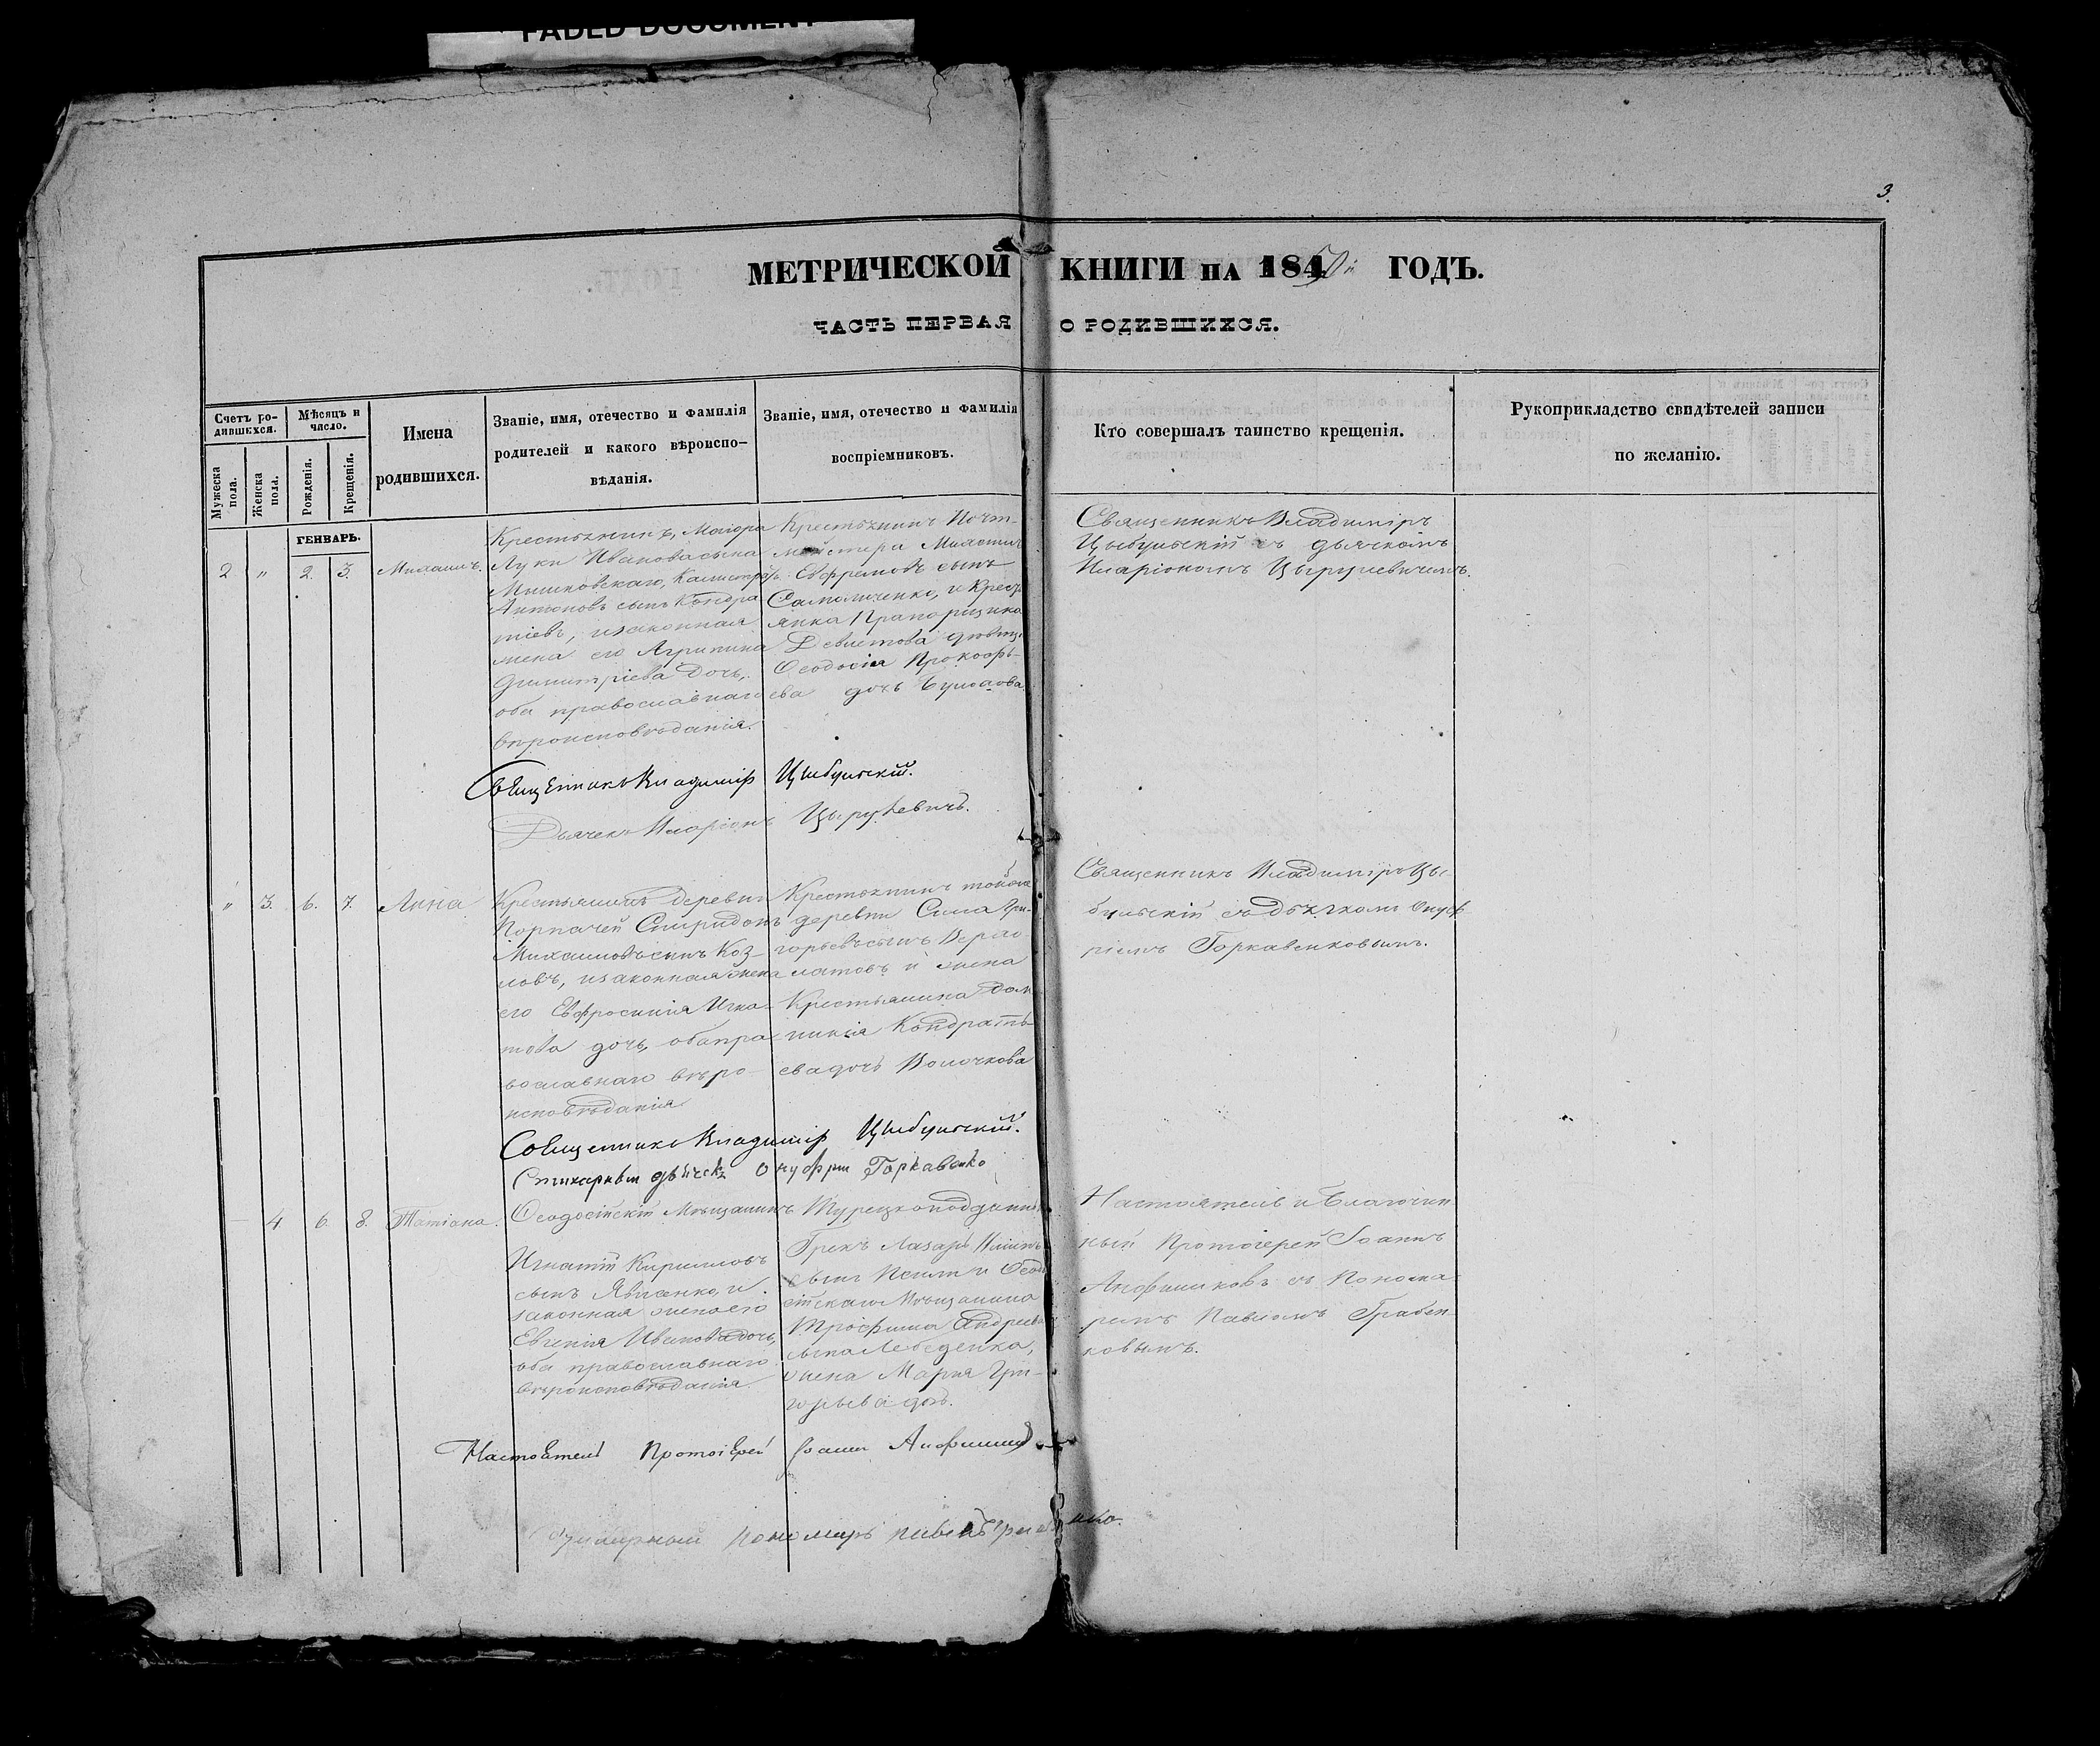 FADED DOCUMENT
3.
МЕТРИЧЕСКОЙ КНИГИ на 1850й ГОДЪ.
ЧАСТЬ ПЕРВАЯ О РОДИВШИХСЯ.
Счетъ ро-
дившихся.
Мужеска
пола.
Женска
пола.
Мѣсяцъ и
число.
Рожденія.
Крещенія.
Имена
родившихся.
Званіе, имя, отечество и фамилія
родителей и какого вѣроиспо-
вѣданія.
Званіе, имя, отечество и фамилія
воспріемниковъ.
Кто совершалъ таинство крещенія.
Рукоприкладство свидѣтелей записи
по желанію.
ГЕНВАРЬ.
2 " 2. 3. Михаилъ.
Крестьянинъ, Маіора
Луки Иванова сына
Антоновъ сынъ Кондра
тіевъ, и законная
жена его Агрипина
Димитріева дочь,
оба православнаго
вѣроисповѣданія.
Крестьянинъ Почт-
мейстера
Евфремовъ сынъ
янка Прапорщика
Ѳеодосія Прокофь-
ева дочь
Священникъ Владиміръ
Цыбульскій съ дьячкомъ
Иларіономъ Цырулевичемъ.
Священникъ Владиміръ Цыбульскій.
Дьячекъ Иларіонъ Цырулевичъ.
" 3. 6. 7. Анна
Крестьянинъ деревни
Порпачей Спиридонъ
Михаиловъ сынъ Коз-
ловъ, и законная жена
его Евфросинія Игна-
това дочь, оба пра-
вославнаго вѣро-
исповѣданія
Крестьянинъ тойже
деревни Сила Гри-
горьевъ сынъ
и жена
Крестьянина Дом
никія Кондрать-
ева дочь Волочкова
Священникъ Владиміръ Цы-
бульскій съ дьячкомъ Онуф-
ріемъ Горкавенковымъ.
Священникъ Владиміръ Цыбульскій.
Стихарный дьячекъ Онуфрій Горкавенко
4 6. 8. Татіана.
Ѳеодосійскій Мѣщанинъ
Игнатій Кирилловъ
сынъ и
законная жена его
Евгенія Иванова дочь,
оба православнаго
вѣроисповѣданія.
Турецкоподданн
Грекъ Лазарь
сынъ и Ѳеодо
сійскаго Мѣщанина
Трофима Андреева
сына Лебеденка,
жена Марія Гри-
горьева дочь.
Настоятель и Благочин
ный Протоіерей Іоаннъ
съ Понома-
ремъ Павломъ Грабен-
ковымъ.
Настоятель Протоіерей Іоаннъ
Пономарь Павелъ